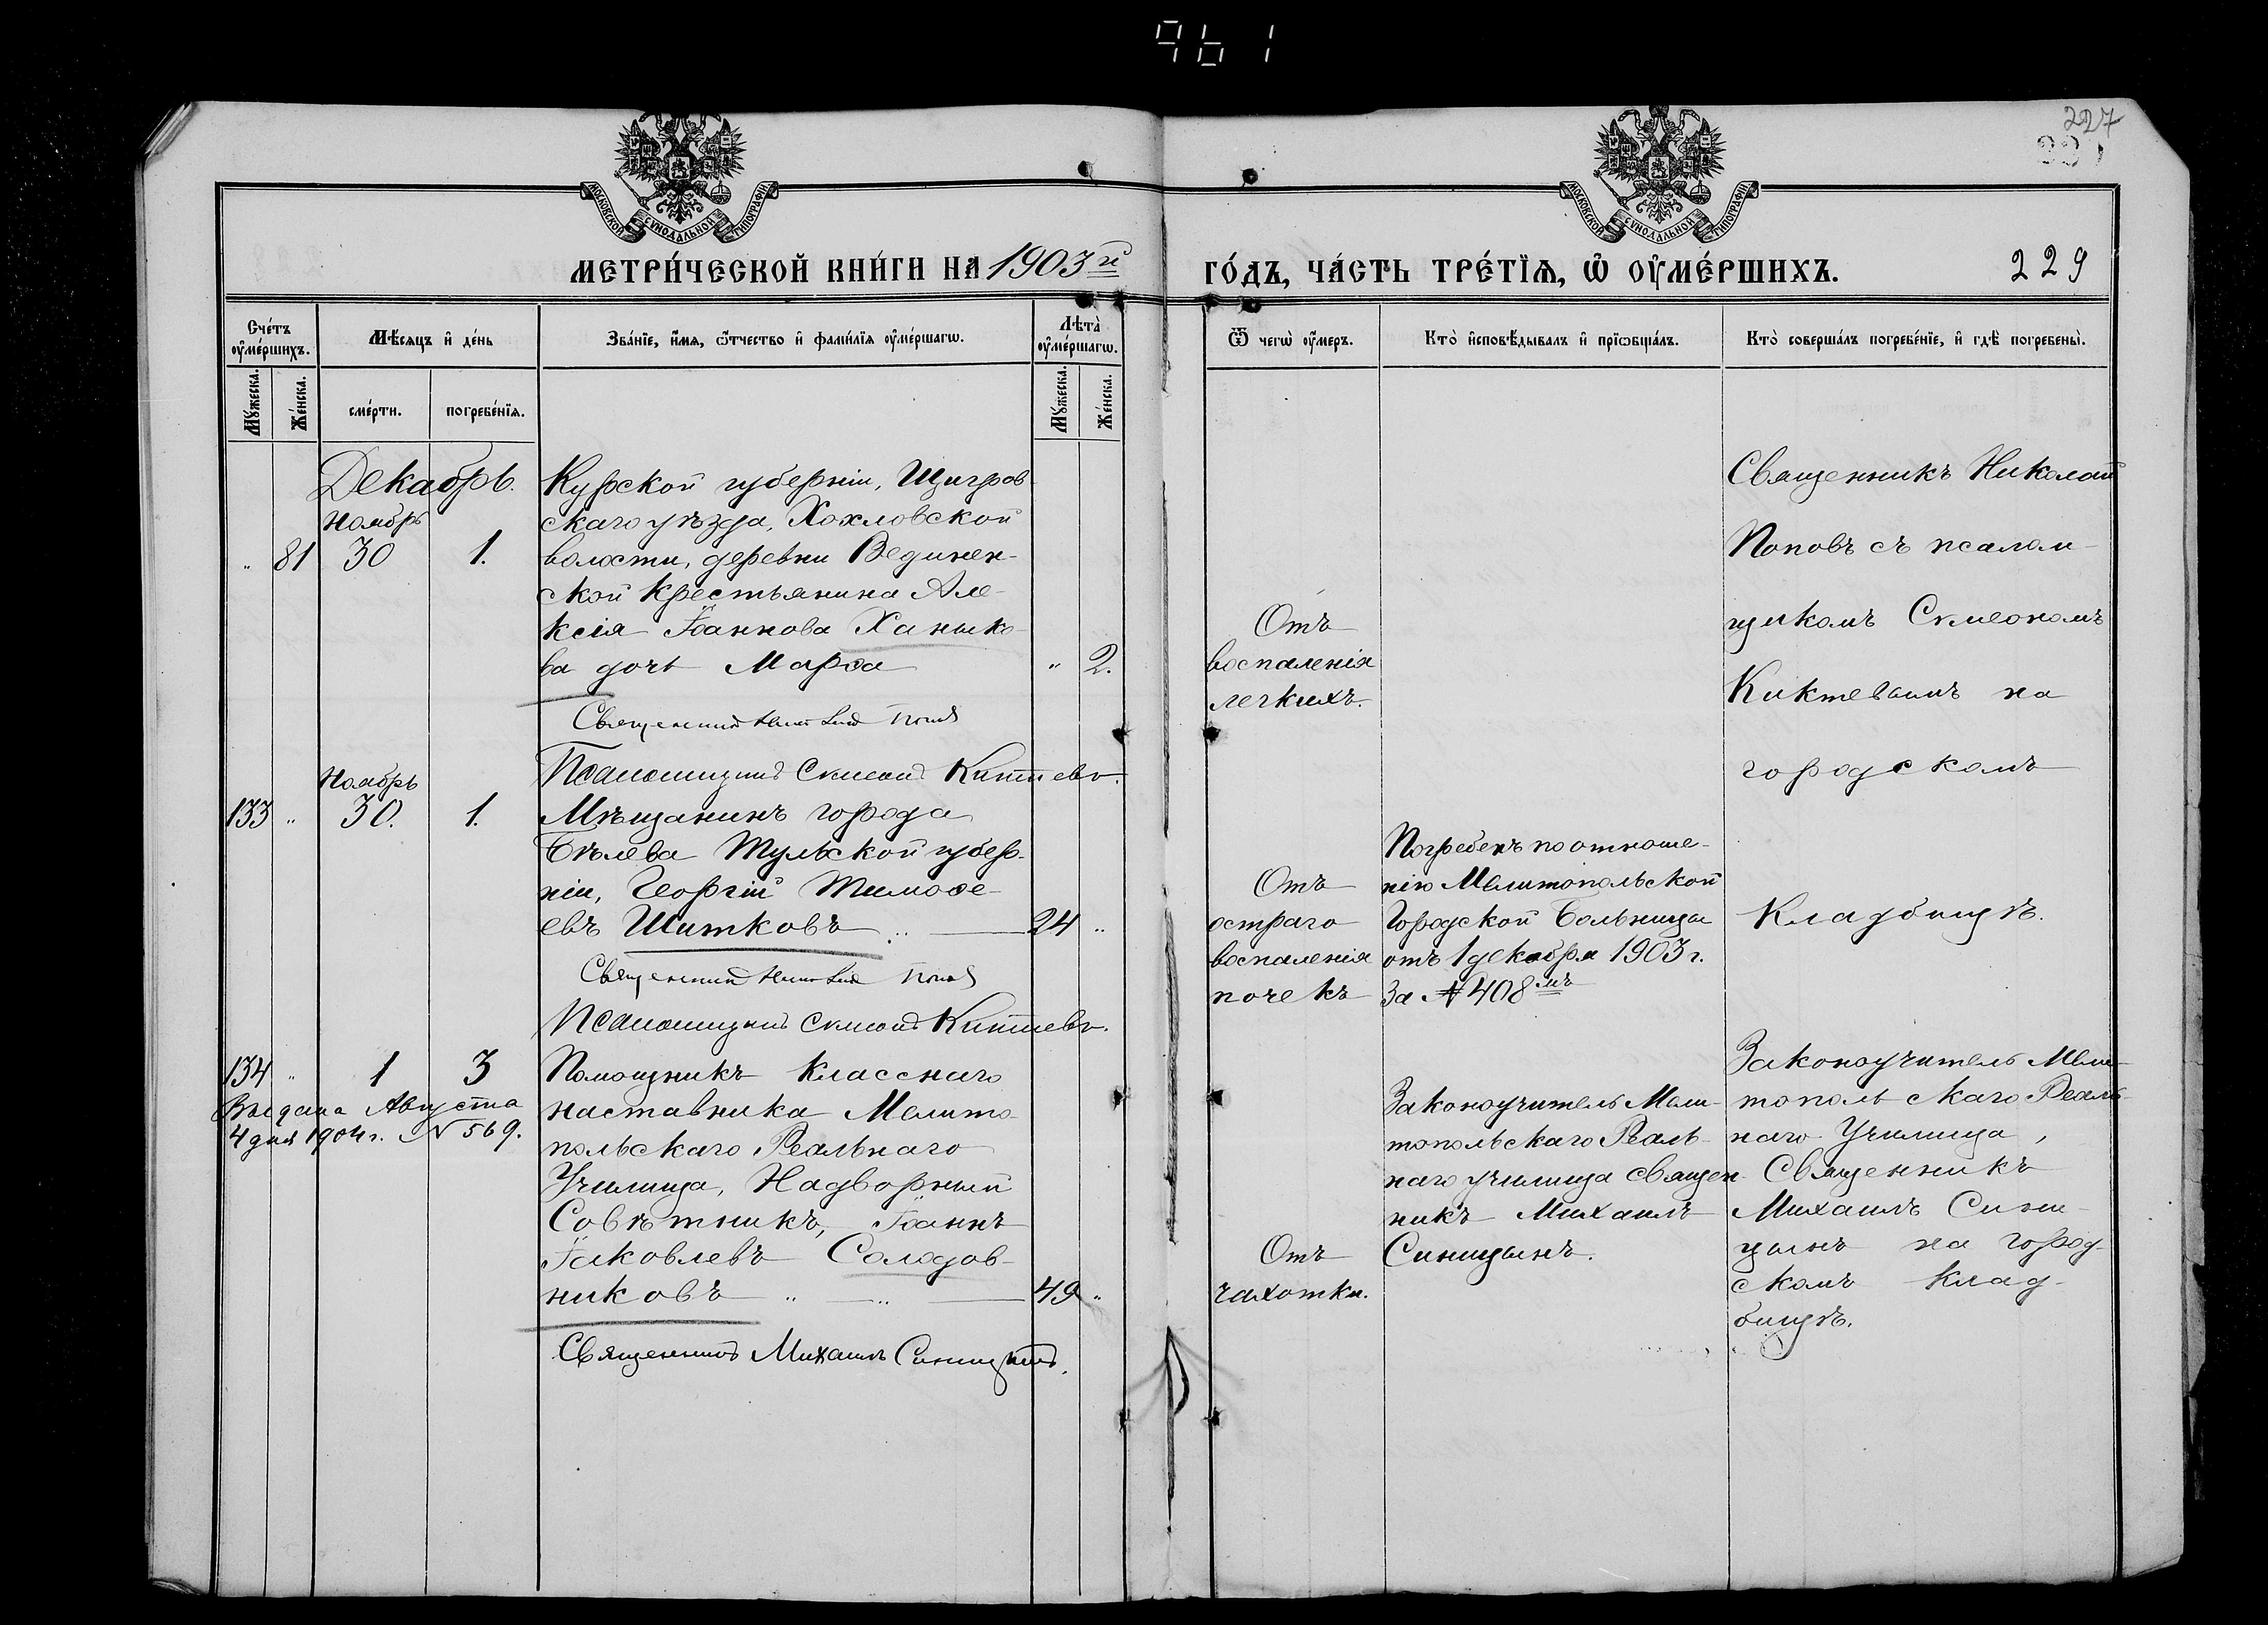 961
227
МОСКОВСКОЙ СѴНОДАЛЬНОЙ ТИПОГРАФІИ
МОСКОВСКОЙ СѴНОДАЛЬНОЙ ТИПОГРАФІИ
МЕТРИ́ЧЕСКОЙ КНИ́ГИ НА 1903й
ГО́ДЪ, ЧА́СТЬ ТРЕ́ТЇѦ, Ѡ҆ ОУ҆МЕ́РШИХЪ.
229
Сче́тъ оу҆ме́ршихъ.
Мѣ́сяцъ и҆ де́нь
Зва́нїе, и҆́мѧ, ѻ҆́тчество и҆ фами́лїѧ оу҆ме́ршагѡ.
Лѣта̀ оу҆ме́ршагѡ.
Ѿ чегѡ̀ оу҆́меръ.
Кто̀ и҆сповѣ́дывалъ и҆ прїѡбща́лъ.
Кто̀ соверша́лъ погребе́нїе, и҆ гдѣ̀ погребены̀.
Мꙋ́жеска.
Же́нска.
сме́рти.
погребе́нїѧ.
Мꙋ́жеска.
Же́нска.
Декабрь.
Ноябрь
" 81 30 1.
Курской губерніи, Щигров-
скаго уѣзда, Хохловской
волости, деревни Вединен-
ской крестьянина Але-
ксія Іоаннова Ханыко-
ва дочь Марѳа " 2.
Отъ
воспаленія
легкихъ.
Священникъ Николай
Поповъ съ псалом-
щикомъ Симеономъ
Киктевымъ на
городскомъ
Кладбищѣ.
Священникъ Николай Поповъ
Псаломщикъ Симеонъ Киктевъ.
Ноябрь
133 " 30. 1.
Мѣщанинъ города
Бѣлева Тульской губер-
ніи, Георгій Тимоѳе-
евъ Шитковъ " 24 "
Отъ
остраго
воспаленія
почекъ
Погребенъ по отноше-
нію Мелитопольской
Городской Больницы
отъ 1 декабря 1903 г.
За № 408мъ
Священникъ Николай Поповъ
Псаломщикъ Симеонъ Киктевъ.
134 " 1 3
Выдана Августа
4 дня 1904 г. № 569.
Помощникъ Класснаго
наставника Мелито-
польскаго Реальнаго
Училища, Надворный
Совѣтникъ, Іоаннъ
Іаковлевъ Солодов-
никовъ " " 49 "
Отъ
чахотки.
Законоучитель Мели-
топольскаго Реаль-
наго училища священ-
никъ Михаилъ
Синицынъ.
Законоучитель Мели-
топольскаго Реаль-
наго Училища,
Священникъ
Михаилъ Сини-
цынъ на город-
скомъ клад-
бищѣ.
Священникъ Михаилъ Синицынъ.